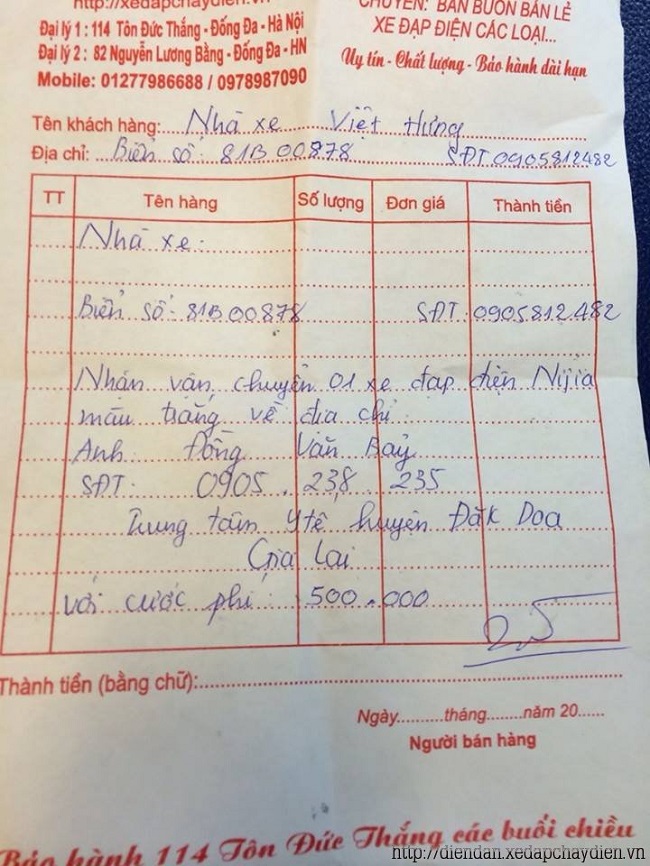 http://xedapchaydien.vn
Đại lý 1 : 114 Tôn Đức Thắng - Đống Đa - Hà Nội
Đại lý 2 : 82 Nguyễn Lương Bằng - Đống Đa - HN
Mobile: 01277986688 / 0978987090
CHUYÊN: BÁN BUÔN BÁN LẺ
XE ĐẠP ĐIỆN CÁC LOẠI...
Uy tín - Chất lượng - Bảo hành dài hạn
Tên khách hàng: Nhà xe Việt Hưng
Địa chỉ: Biển số: 81B 00878 SĐT 0905812482
TT Tên hàng Số lượng Đơn giá Thành tiền
Nhà xe:
Biển số: 81B 00878 SĐT: 0905812482
Nhận vận chuyển 01 xe đạp điện Nijia
màu trắng về địa chỉ:
Anh: Đồng Văn Bảy
SĐT: 0905.238.235
Trung tâm y tế huyện Đăk Doa
Gia Lai
với cước phí: 500.000
Thành tiền (bằng chữ):
Ngày.........tháng........năm 20......
Người bán hàng
Bảo hành 114 Tôn Đức Thắng các buổi chiều
http://diendan.xedapchaydien.vn